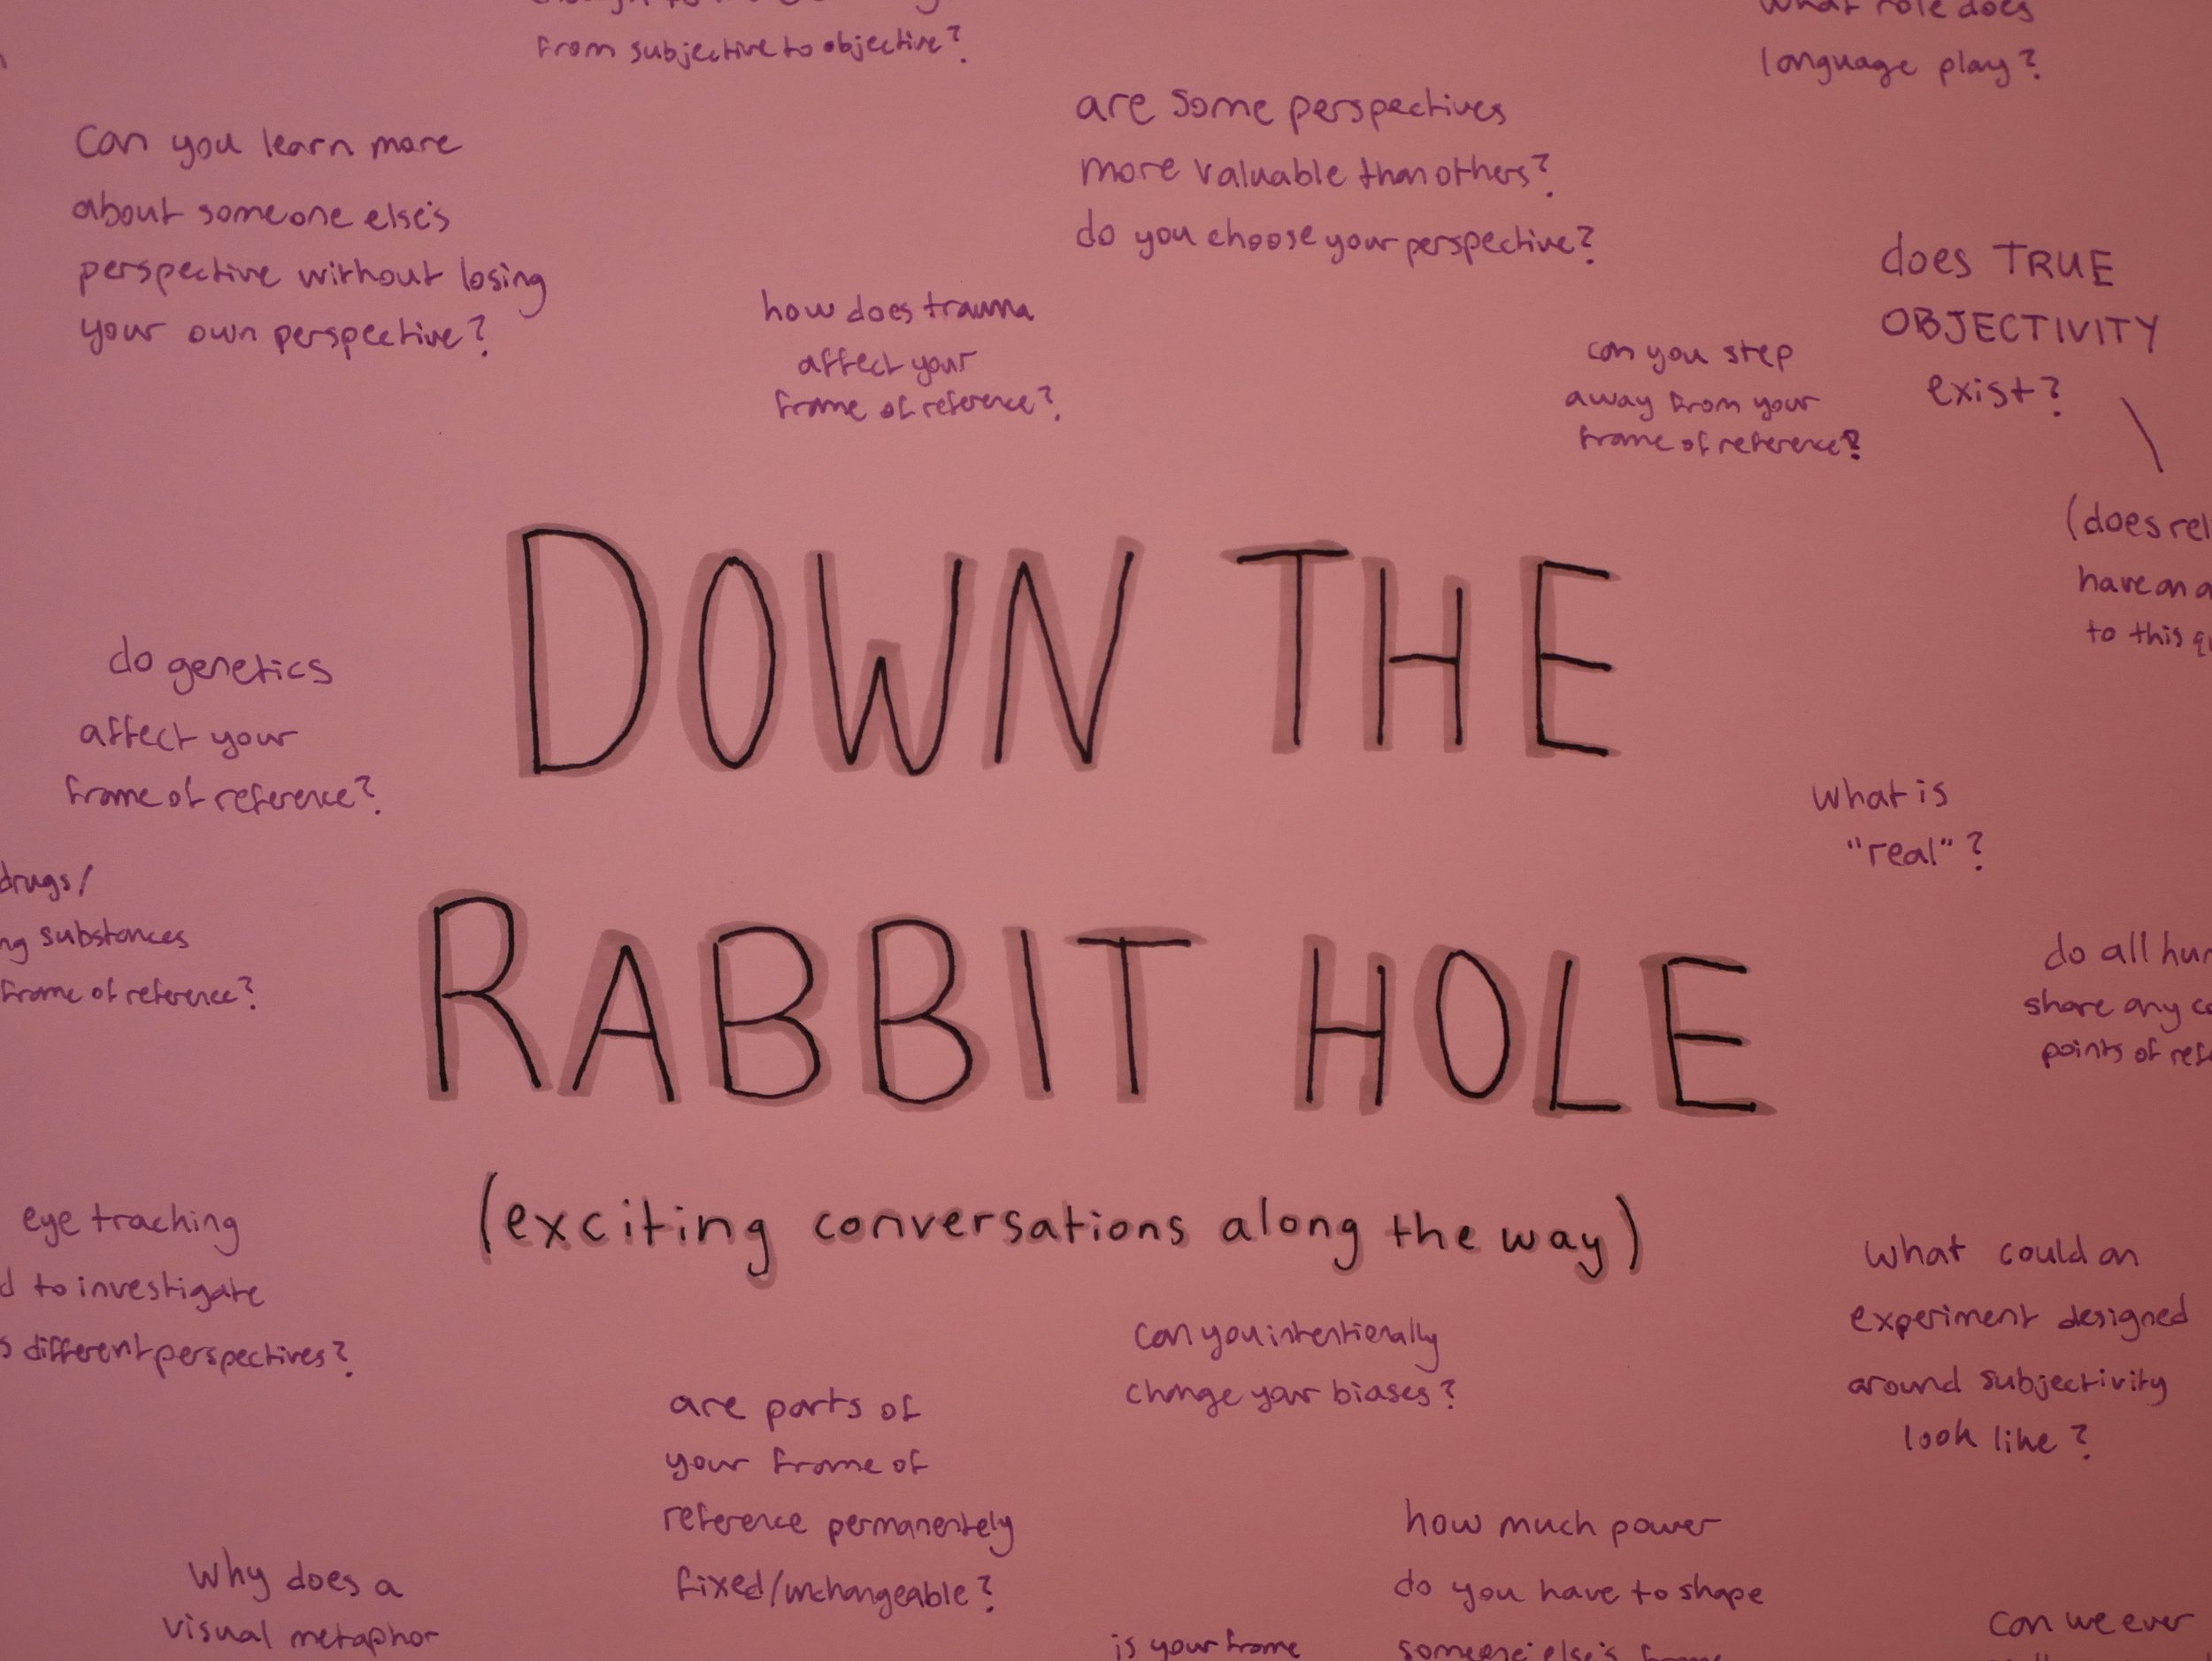 from subjective to objective?
what role does
language play?
can you learn more
about someone else's
perspective without losing
your own perspective?
are some perspectives
more valuable than others?
do you choose your perspective?
how does trauma
affect your
frame of reference?
can you step
away from your
frame of reference?
does TRUE
OBJECTIVITY
exist?
(does
have an
to this
DOWN THE
RABBIT HOLE
(exciting conversations along the way)
do genetics
affect your
frame of reference?
drugs/
substances
frame of reference?
what is
"real"?
do all
share any
points of
eye tracking
to investigate
different perspectives?
can you intentionally
change your biases?
what could an
experiment designed
around subjectivity
look like?
are parts of
your frame of
reference permanentely
fixed/unchangeable?
how much power
do you have to shape
someone else's frame
why does a
visual metaphor
is your frame
can we ever